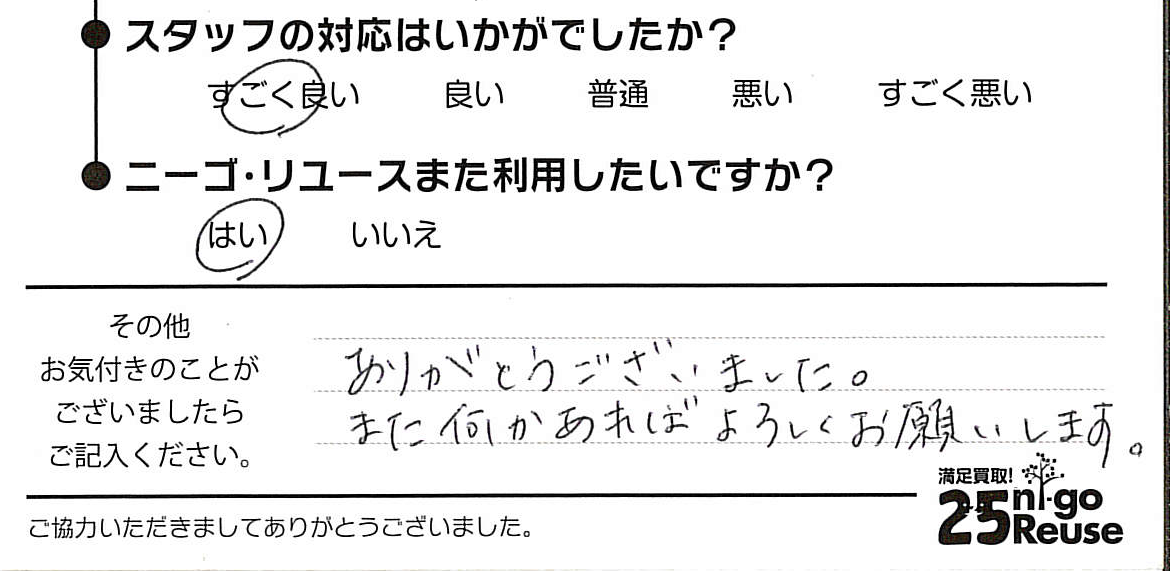 スタッフの対応はいかがでしたか?
すごく良い 良い 普通 悪い すごく悪い
ニーゴ・リユースまた利用したいですか?
はい いいえ
その他
お気付きのことが
ございましたら
ご記入ください。
ありがとうございました。
また何かあればよろしくお願いします。
満足買取!
25 ni-go
Reuse
ご協力いただきましてありがとうございました。